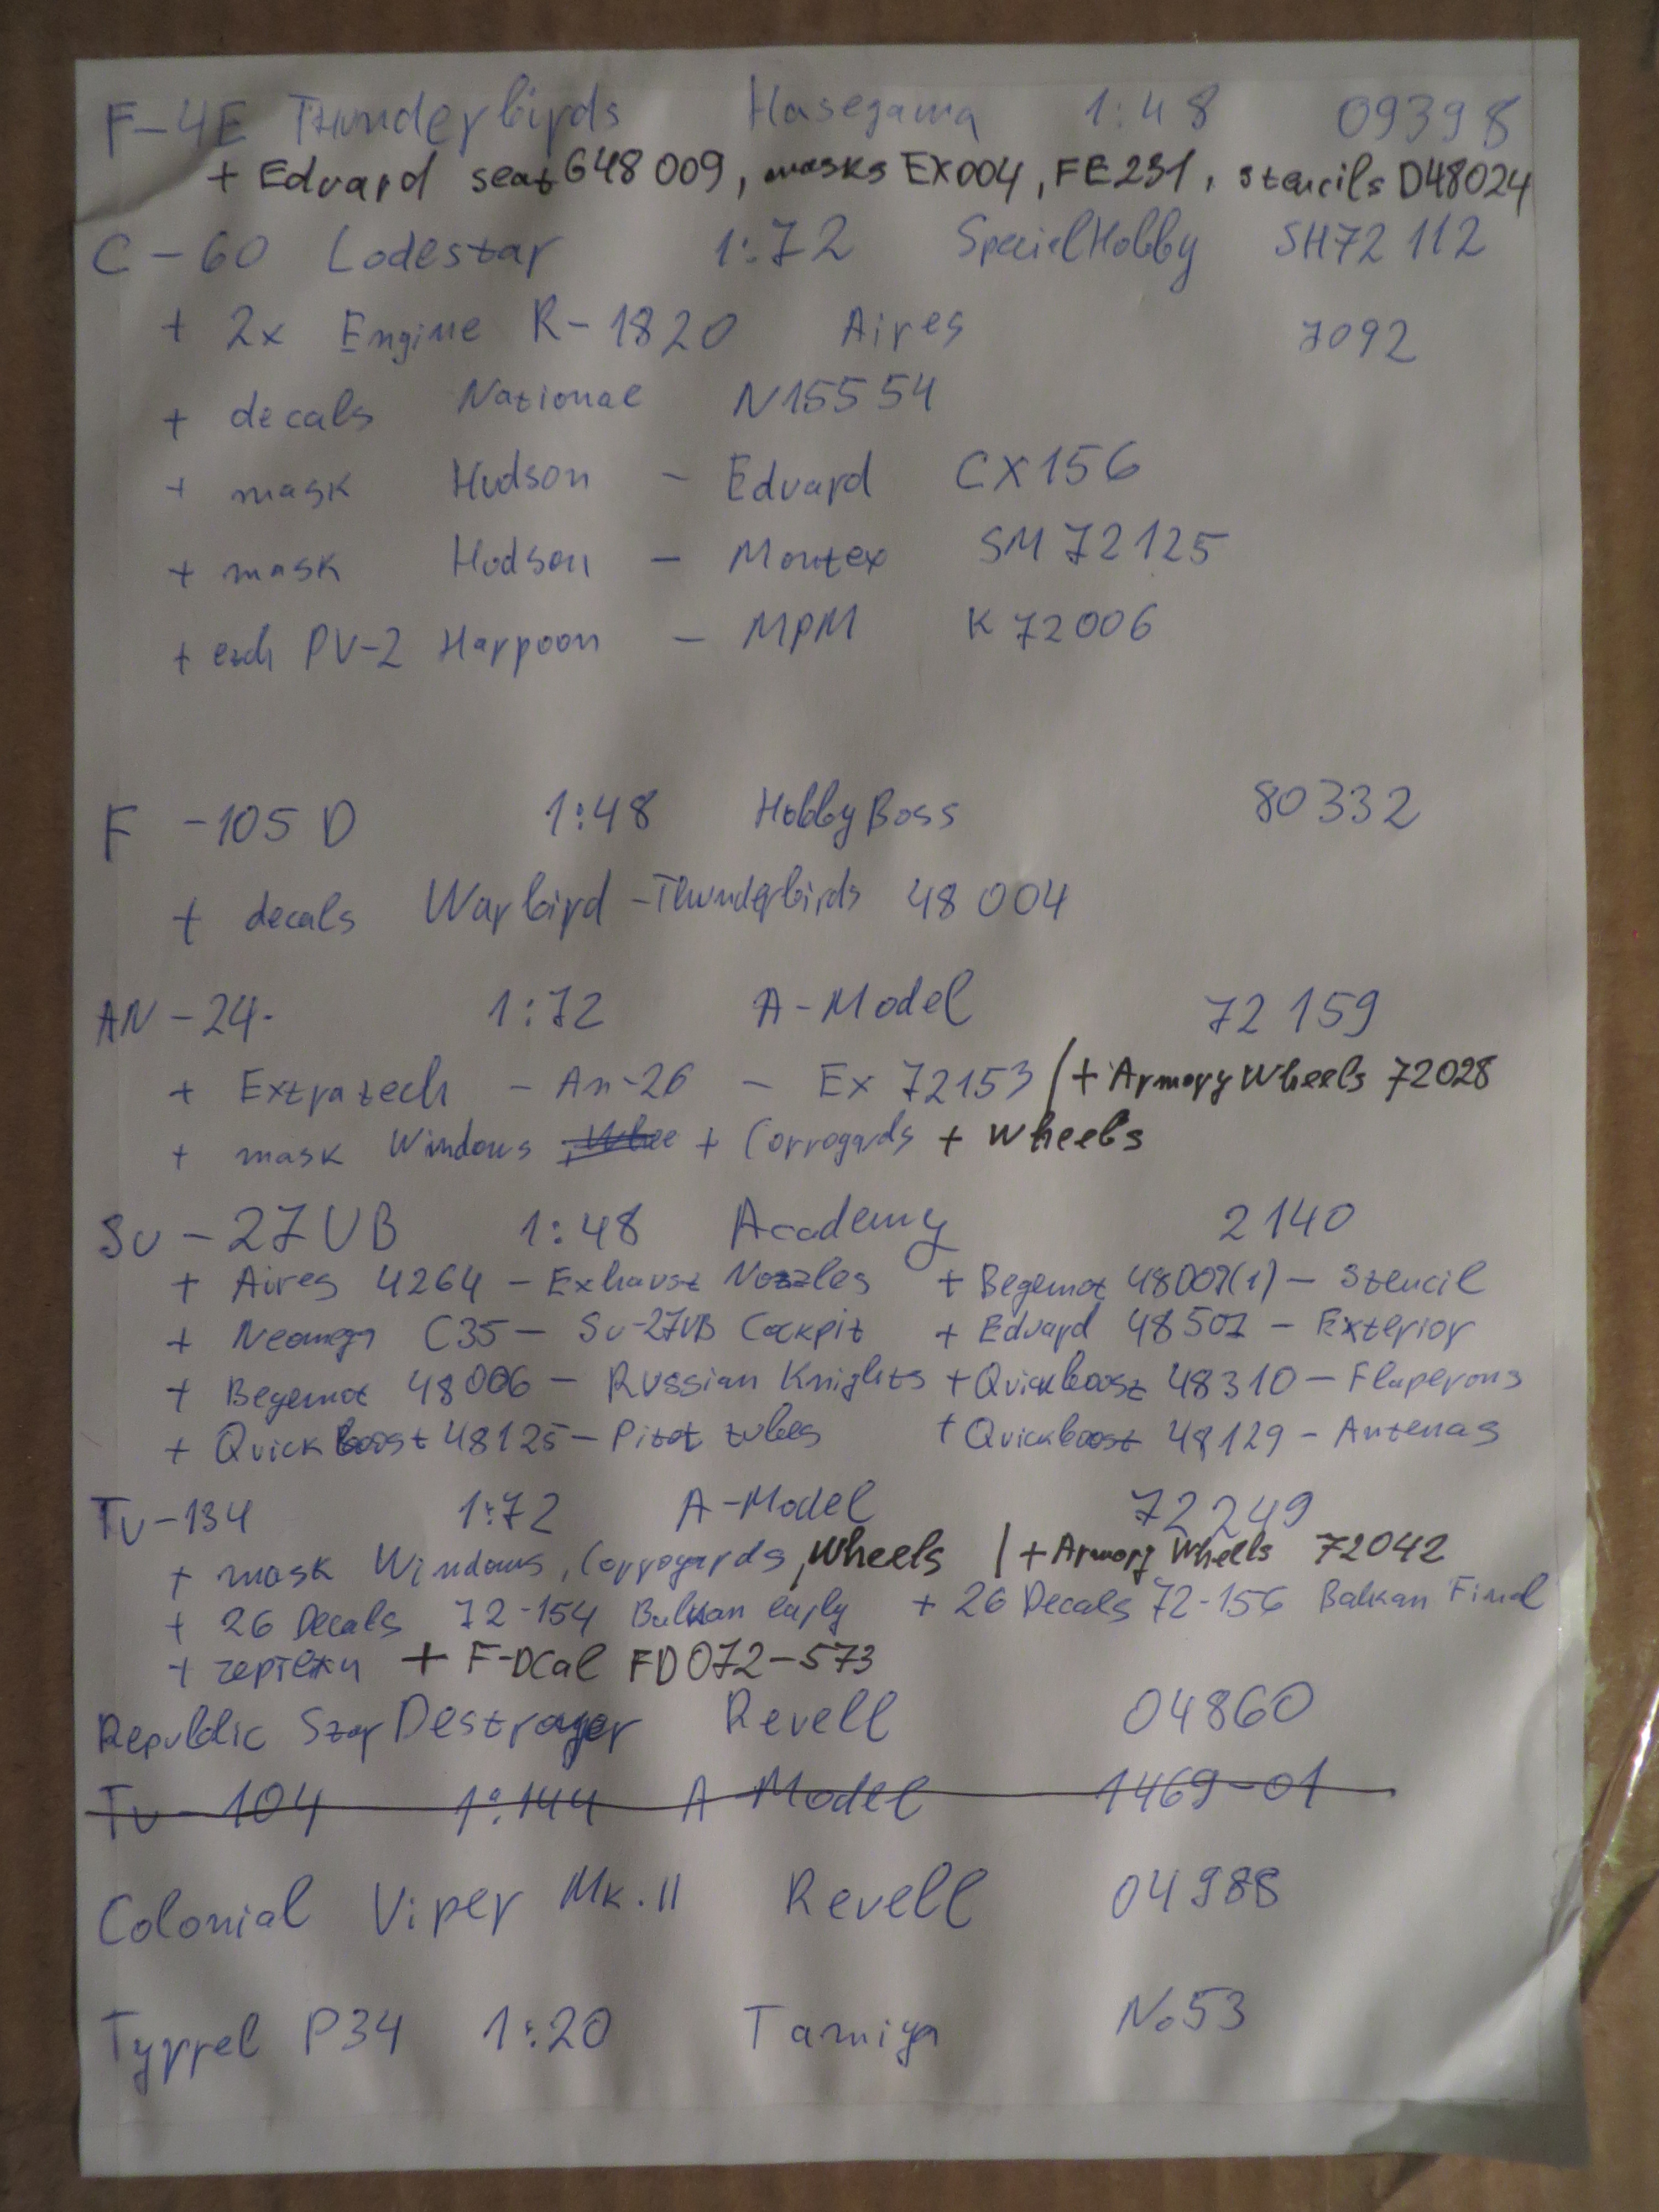 F-4E Thunderbirds Hasegawa 1:48 09398
+ Eduard seat 648009, masks EX004, FE231, stencils D48024
C-60 Lodestar 1:72 SpecialHobby SH72112
+ 2x Engine R-1820 Aires 7092
+ decals National N15554
+ mask Hudson - Eduard CX156
+ mask Hudson - Montex SM72125
+ ezch PV-2 Harpoon - MPM K72006
F-105D 1:48 HobbyBoss 80332
+ decals Warbird - Thunderbirds 48004
AN-24 1:72 A-Model 72159
+ Extratech - An-26 - Ex 72153 / + Armory Wheels 72028
+ mask Windows + Corrogards + Wheels
Su-27UB 1:48 Academy 2140
+ Aires 4264 - Exhaust Nozzles + Begemot 48007(1) - Stencil
+ Neomega C35 - Su-27UB Cockpit + Eduard 48507 - Exterior
+ Begemot 48006 - Russian Knights + Quickboost 48310 - Flaperons
+ QuickBoost 48125 - Pitot tubes + Quickboost 48129 - Antenas
Tu-134 1:72 A-Model 72249
+ mask Windows, Corrogards, Wheels / + Armory Wheels 72042
+ 26 Decals 72-154 Balkan early + 26 Decals 72-156 Balkan Final
+ чертежи + F-DCal FD072-573
Republic Star Destroyer Revell 04860
Tu-104 1:144 A-Model 1469-01
Colonial Viper Mk.II Revell 04988
Tyrrel P34 1:20 Tamiya No53